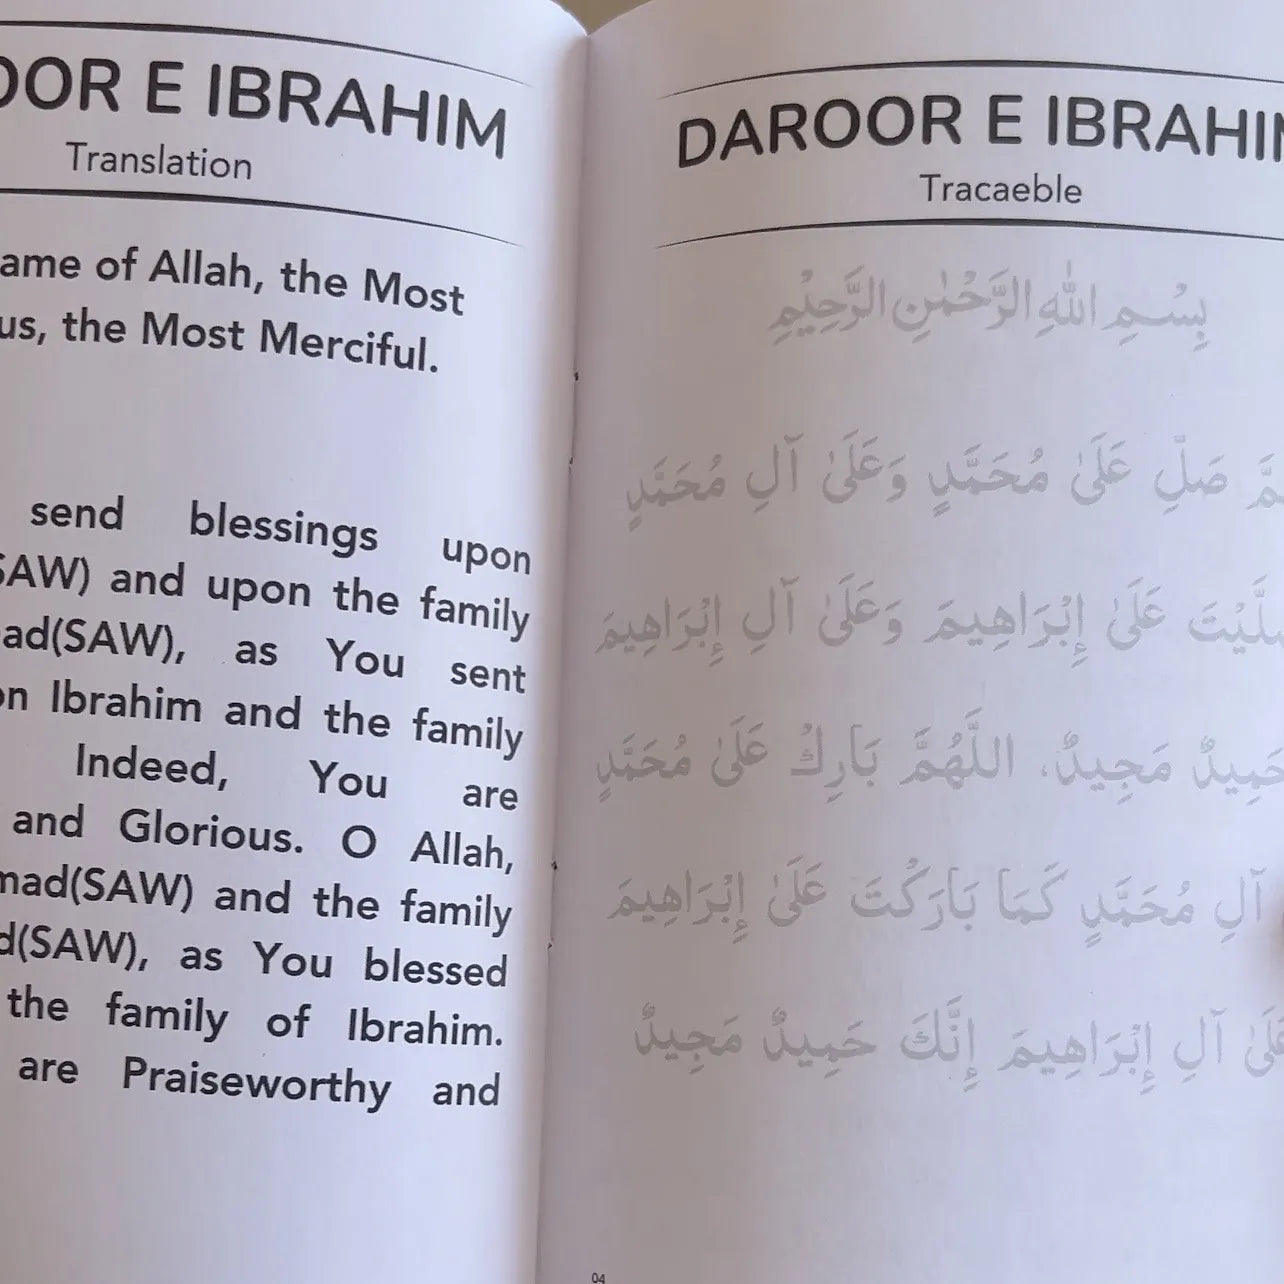 OOR E IBRAHIM
Translation
ame of Allah, the Most
us, the Most Merciful.
send blessings upon
SAW) and upon the family
ad(SAW), as You sent
on Ibrahim and the family
Indeed, You are
and Glorious. O Allah,
mad(SAW) and the family
d(SAW), as You blessed
the family of Ibrahim.
are Praiseworthy and
DAROOR E IBRAHIM
Tracaeble
بِسْمِ اللّٰهِ الرَّحْمٰنِ الرَّحِيْمِ
صَلِّ عَلَىٰ مُحَمَّدٍ وَعَلَىٰ آلِ مُحَمَّدٍ
عَلَىٰ إِبْرَاهِيمَ وَعَلَىٰ آلِ إِبْرَاهِيمَ
حَمِيدٌ مَجِيدٌ، اللَّهُمَّ بَارِكْ عَلَىٰ مُحَمَّدٍ
آلِ مُحَمَّدٍ كَمَا بَارَكْتَ عَلَىٰ إِبْرَاهِيمَ
عَلَىٰ آلِ إِبْرَاهِيمَ إِنَّكَ حَمِيدٌ مَجِيدٌ
04